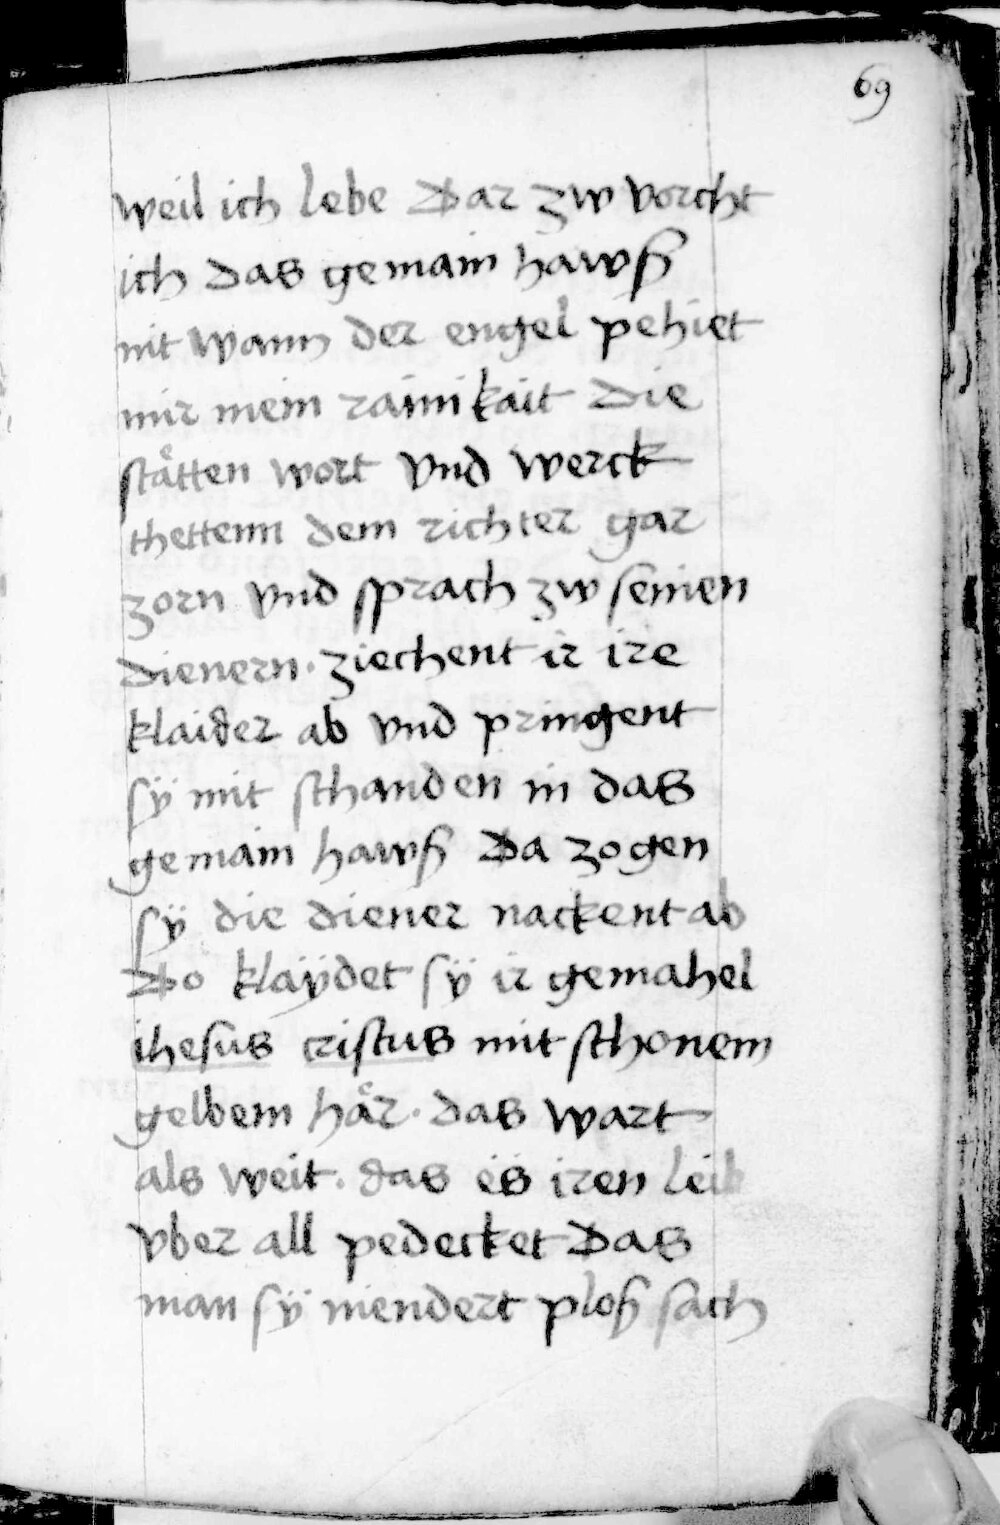 69
weil ich lebe Dar zw vorcht
ich das gemain hawß
nit wann der engel pehiet
mir mein rainikait Die
ståtten wort vnd werck
thettenn dem richter gar
zorn vnd sprach zw seinen
dienern. ziechent ir ire
klaider ab vnd pringent
sÿ mit schanden in das
gemain hawß Da zogen
sÿ die diener nackent ab
Do klaÿdet sÿ ir gemahel
ihesus cristus mit schonem
gelbem hår. das wart
als weit. das es iren leib
vber all pedecket Das
man sÿ niendert ploß sach